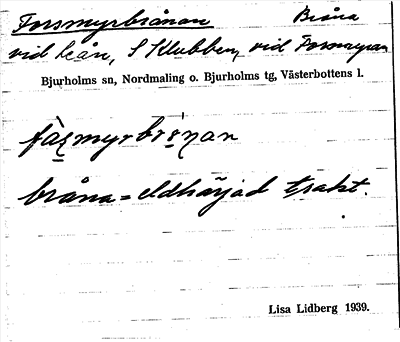 Forsmyrbrånan Bråna
vid Leån, S Klubben, vid Forsmyran
Bjurholms sn, Nordmaling o. Bjurholms tg, Västerbottens l.
bråna = eldhärjad trakt.
Lisa Lidberg 1939.